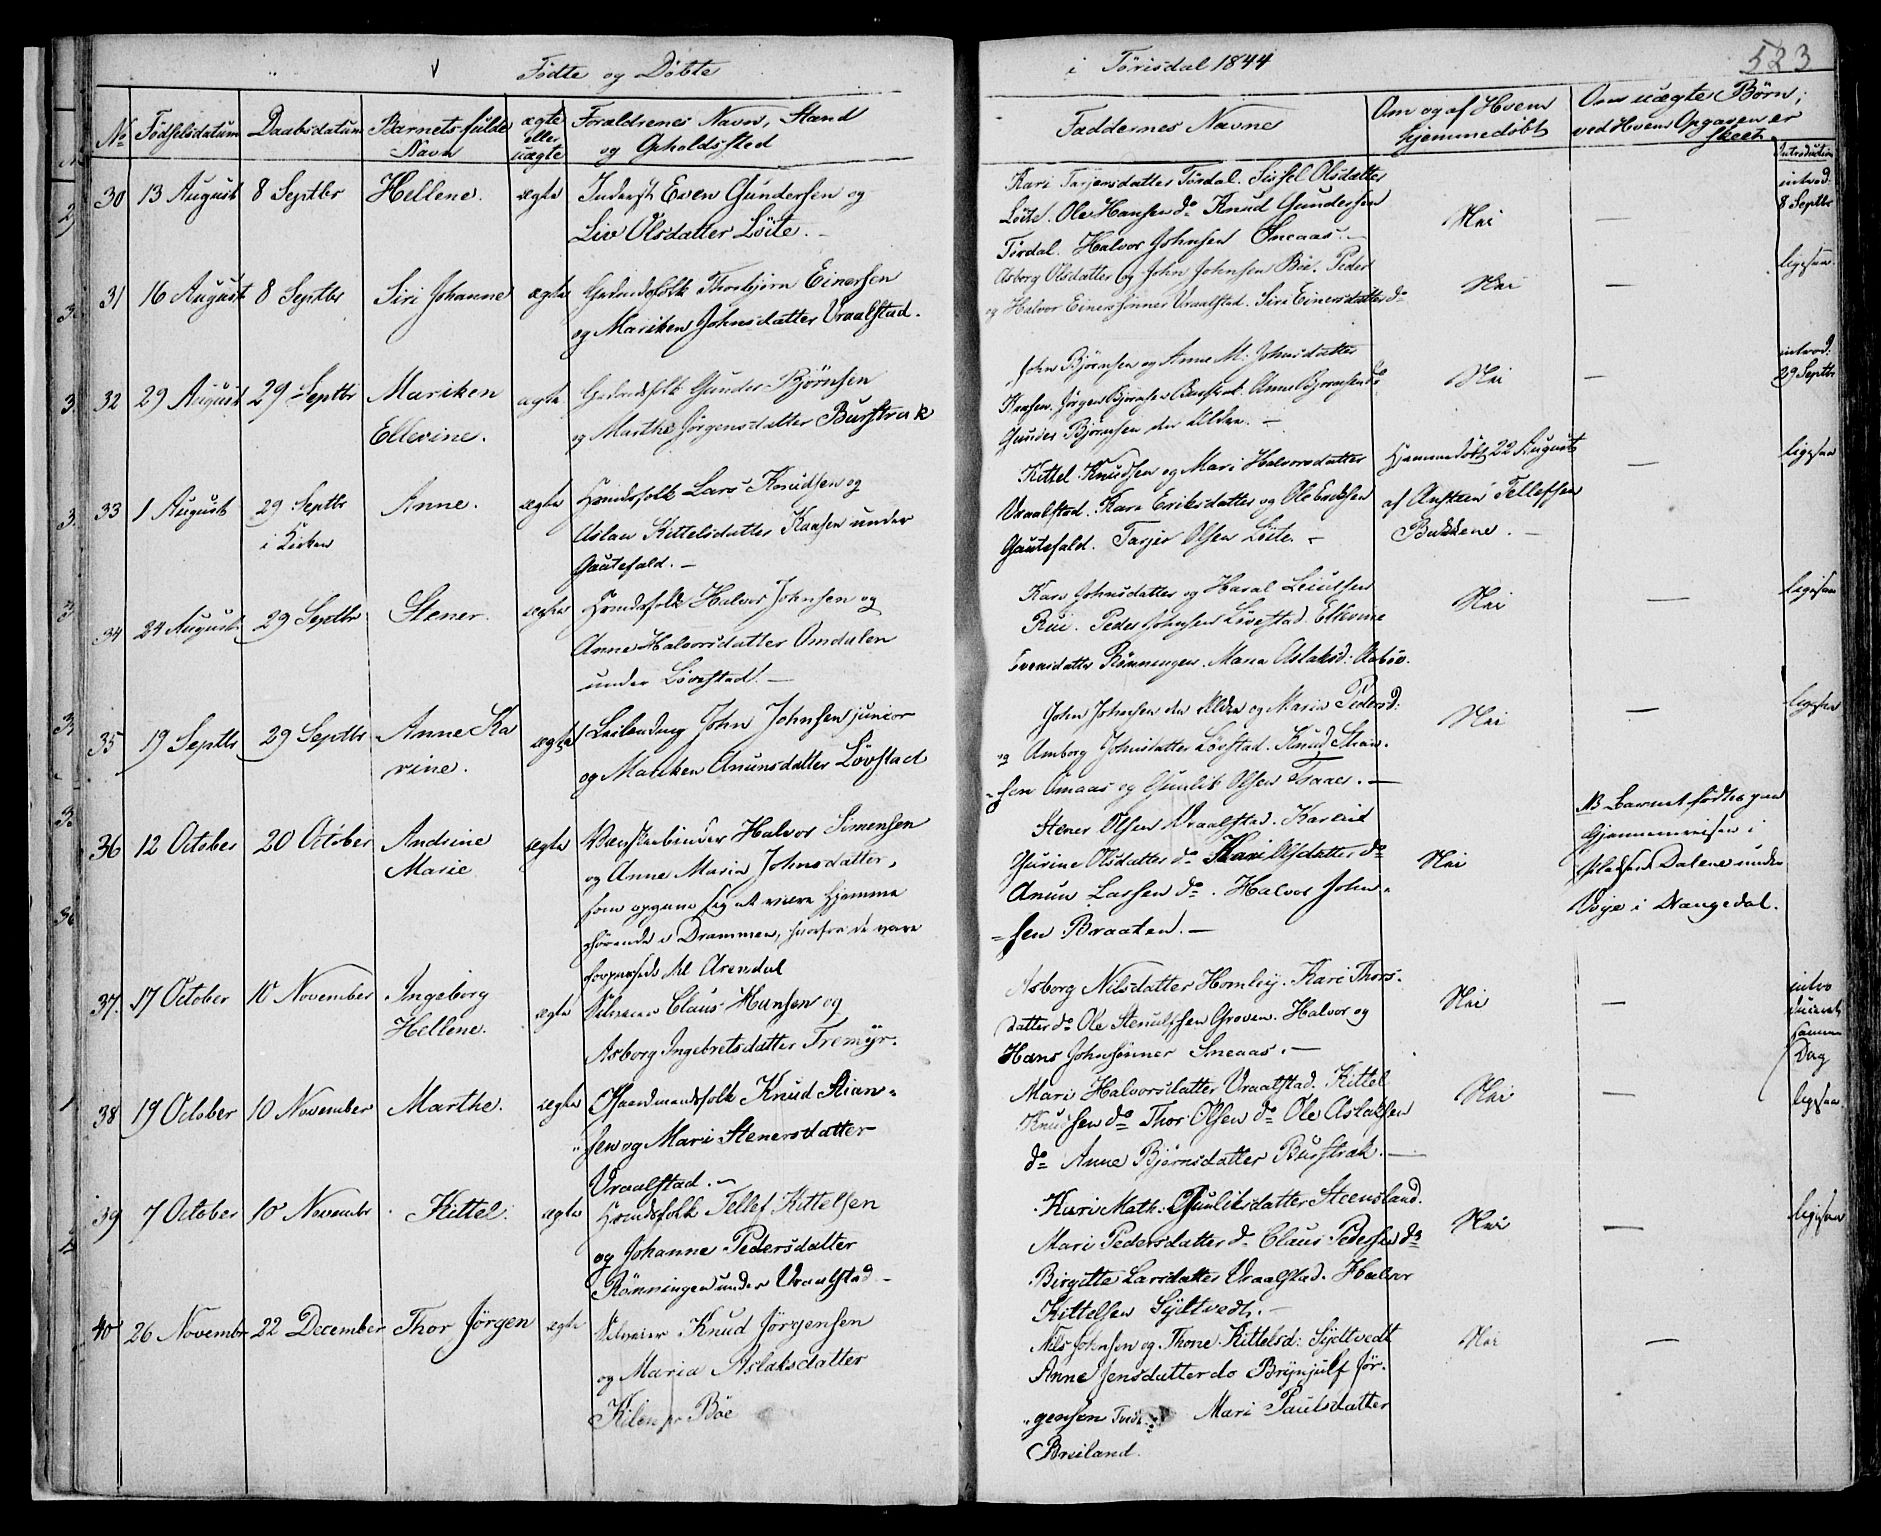 Fødte og Døbte
i Törisdal 1844
523
No
Fødselsdatum
Daabsdatum
Barnets fulde
Navn
ægte
eller
uægte
Forældrenes Navn, Stand
og Opholdssted
Faddernes Navne
Om og af Hvem
hjemmedøbt
Om uægte Børn;
ved Hvem Opgaven er
skeet
Introduction
30 13 August 8 Septbr Hellene. ægte Inderst Even Gundersen og
Liv Olsdatter Löite. –
Kari Tarjersdatter Tördal. Sissel Olsdatter
Löite. Ole Hansen do Knud Gundersen
Tördal. Halvor Johnsen Smeaas. –
Nei
–
introd:
8 Septbr
31 16 August 8 Septbr Siri Johanne ægte Gaardsfolk Thorbjörn Einersen
og Mariken Johnsdatter Vraalstad.
Asborg Olsdatter og John Johnsen Böe. Peder
og Halvor Einersönner Vraalstad. Siri Einersdatter do
Nei
–
ligesaa
32 29 August 29 Septbr Mariken
Ellevine.
ægte Gaardsfolk Gunder Björnsen
og Marthe Jörgensdatter Busstrak
John Björnsen og Anne M. Johnsdatter
Kaasen. Jörgen Björnsen Busstrak. Anne Björnsend do
Gunder Björnsen den Ældre. –
Nei
–
introd:
29 Septbr
33 1 August 29 Septbr
i Kirken
Anne. ægte Huusfolk Lars Knudsen og
Aslau Kittelsdatter Kaasen under
Gautefald. –
Kittel Knudsen og Mari Halvorsdatter
Vraalstad. Kari Eriksdatter og Ole Eriksen
Gautefald. Tarjer Olsen Löite. –
Hjemmedøbt 22 August
af Austen Tellefsen
Bakkene. –
–
ligesaa
34 24 August 29 Septbr Stener. ægte Huusfolk Halvor Johnsen og
Anne Halvorsdatter Omdalen
under Lövestad. –
Kari Johnsdatter og Haral Leiulsen
Rui. Peder Johnsen Lövestad. Ellevine
Evensdatter Rönningen. Maria Aslaksd:
Nei
–
ligesaa
35 19 Septbr 29 Septbr Anne Ka
rine.
ægte Leilending John Johnsen junior
og Mariken Anunsdatter Lövstad
John Johnsen den Ældre og Maria Pedersd:
og Amborg Johnsdatter Lövstad. Knud Stian-
-sen Omaas og Gunlik Olsen Traaer. –
Nei
–
ligesaa
36 12 October 20 October Andrine
Marie
ægte Væskebinder Halvor Simensen
og Anne Maria Johnsdatter,
som opgave sig at være Hjemme
hörende i Drammen, hvorfra de vare
forpassede til Arendal
Stener Olsen Vraalstad. Karen
Gurine Olsdatter do Kari Olsdatter do
Anun Larsen do. Halvor John-
-sen Braaten. –
Nei
NB Barnet fødtes paa
Gjennemreisen i
Pladsen Dalene under
Voje i Drangedal.
37. 17 October 10 November Ingeborg
Hellene.
ægte Selveier Claus Hansen og
Asborg Ingebretsdatter Tremyr.
Asborg Nilsdatter Homlej. Kari Thors-
datter do Ole Stenulfsen Groven. Halvor og
Hans Johnsönner Smeaas. –
Nei
–
intro
duceret
samme
Dag
38 19 October 10 November Marthe. ægte Gaardmandsfolk Knud Stian-
-sen og Mari Stenersdatter
Vraalstad. –
Mari Halvorsdatter Vraalstad. Kittel
Knudsen do Thor Olsen do Ole Aslaksen
do Anne Björnsdatter Busstrak. –
Nei
–
ligesaa
39 7 October 10 Novembr Kittel. ægte Huusfolk Tellef Kittelsen
og Johanne Pedersdatter
Rönningen under Vraalstad –
Kari Math: Gunliksdatter Steensland.
Mari Pedersdatter do Claus Pedersen do
Birgitte Larsdatter Vraalstad. Halvor
Kittelsen Sydtvedt. –
Nei
–
ligesaa
40 26 Novembr 22 December Thor Jörgen ægte Selveier Knud Jörgensen
og Maria Aslaksdatter
Kilen pr Böe
Nils Johnsen og Thone Kittelsd: Sydtvedt
Anne Jensdatter do Brynjulf Jör-
-gensen Tvedt Mari Paulsdatter
Breiland.
Nei
–